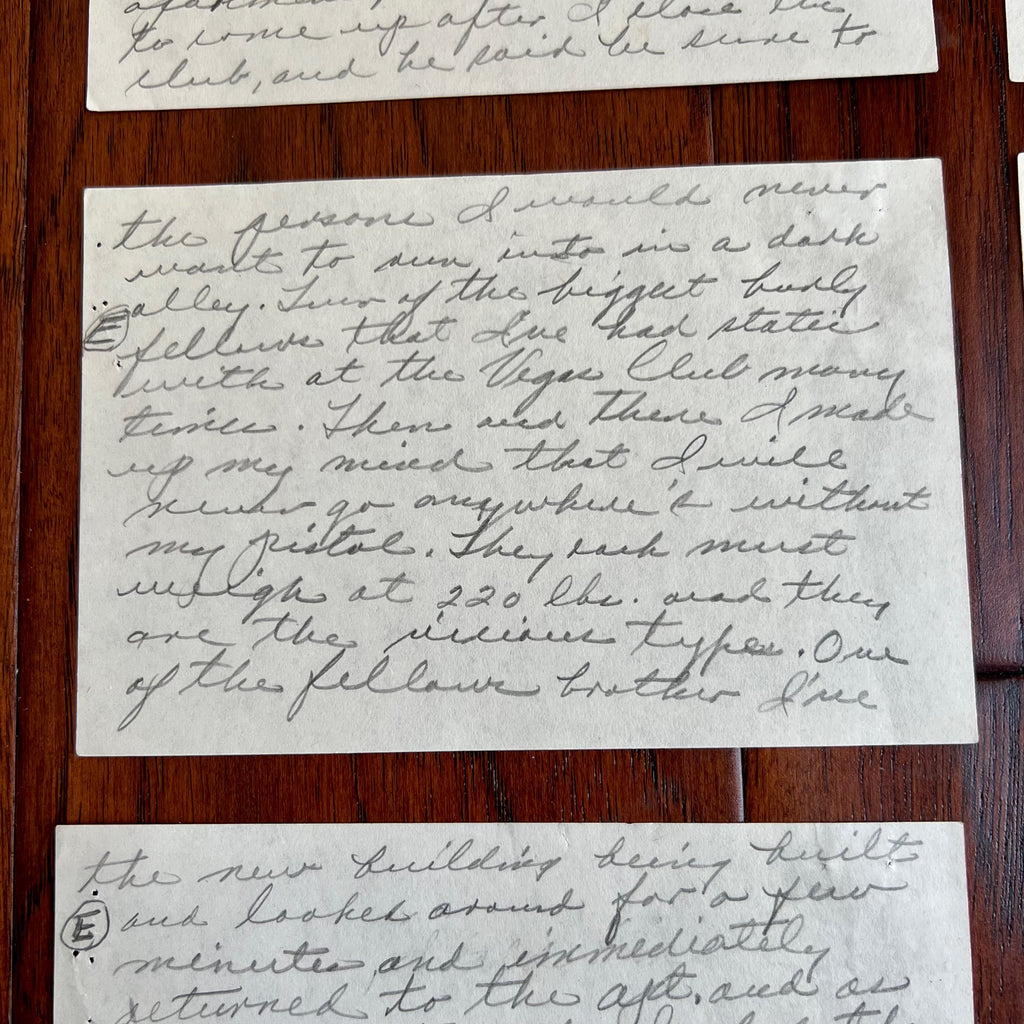 to come up after I close the
club, and he said be sure to
the persons I would never
want to run into in a dark
alley. Two of the biggest burly
E
fellows that I've had static
with at the Vegas Club many
times. Then and there I made
up my mind that I will
never go anywhere's without
my pistol. They each must
weigh at 220 lbs. and they
are the vicious types. One
of the fellows brother I've
the new building being built
E
and looked around for a few
minutes and immediately
returned to the apt. and as